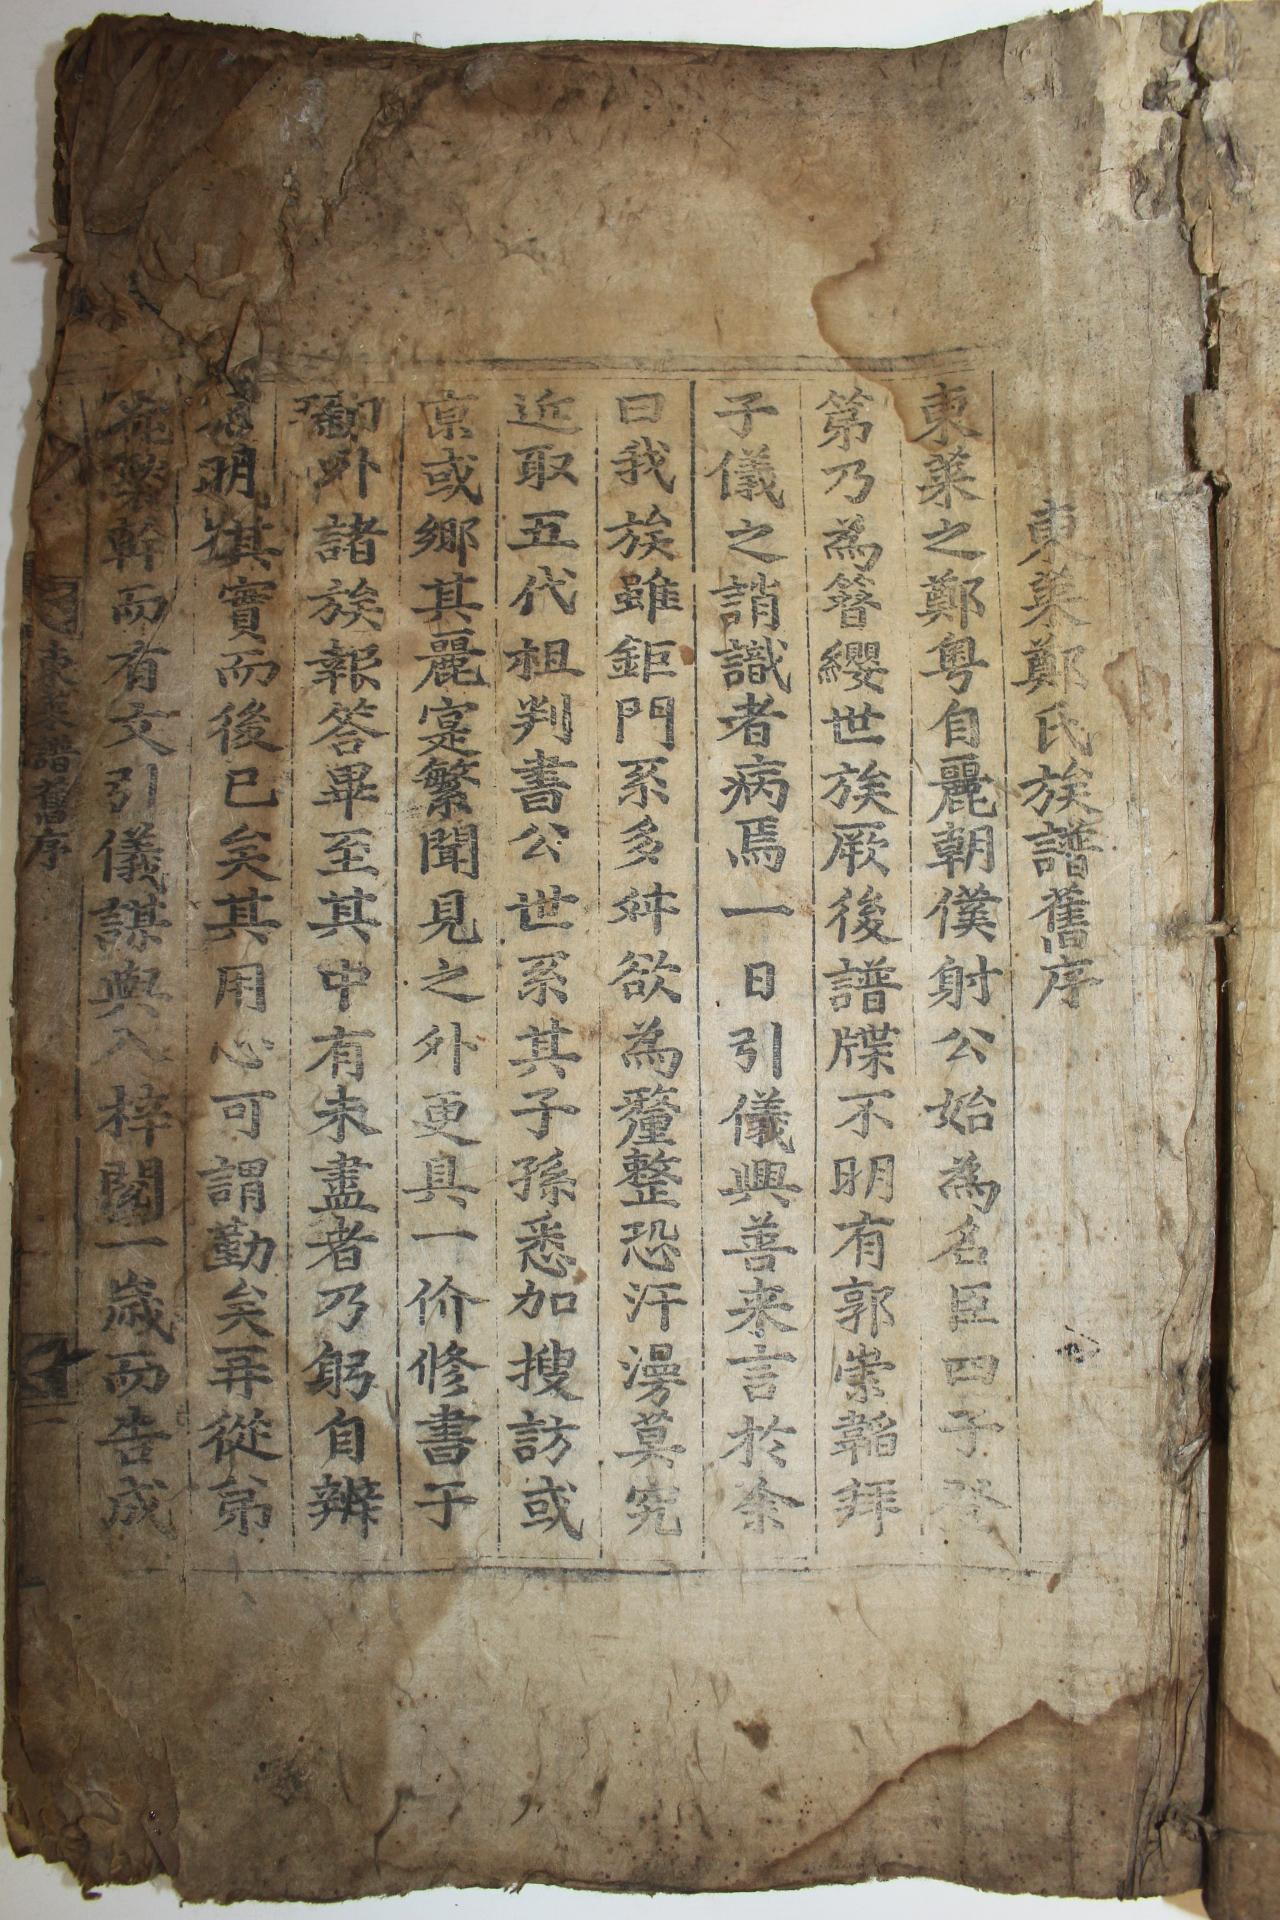 東萊鄭氏族譜舊序
東萊之鄭粤自麗朝僕射公始為名臣四子登
第乃為簪纓世族厥後譜牒不明有郭崇韜拜
子儀之誚識者病焉一日引儀興善来言於余
曰我族雖鉅門系多舛欲為釐整恐汗漫莫究
近取五代祖判書公世系其子孫悉加搜訪或
京或鄉其麗寔繁聞見之外更具一价修書于
外諸族報答畢至其中有未盡者乃躬自辨
明 其實而後已矣其用心可謂勤矣再從弟
幹而有文引儀謀與入梓閱一歲而告成
東萊譜舊序
一